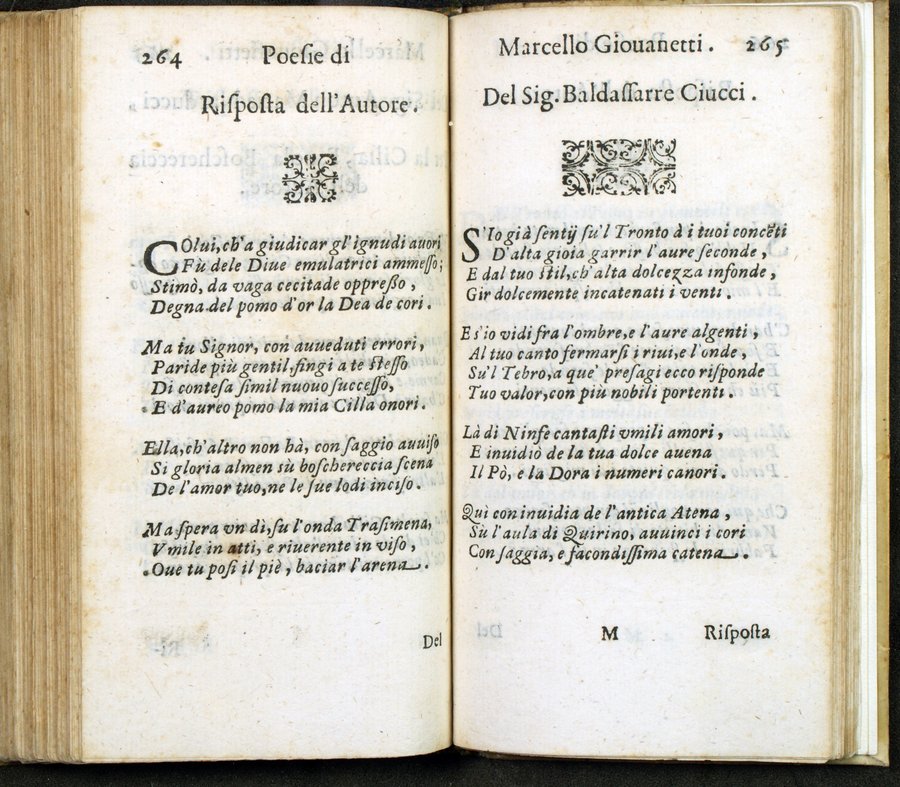 264 Poeſie di
Riſpoſta dell'Autore.
COlui, ch'a giudicar gl'ignudi auori
Fù dele Diue emulatrici ammeſſo;
Stimò, da vaga cecitade oppreſſo,
Degna del pomo d'or la Dea de cori.
Ma tu Signor, con auueduti errori,
Paride più gentil, fingi a te ſteſſo
Di conteſa ſimil nuouo ſucceſſo,
E d'aureo pomo la mia Cilla onori.
Ella, ch'altro non hà, con ſaggio auuiſo
Si gloria almen sù boſchereccia ſcena
De l'amor tuo, ne le ſue lodi inciſo.
Ma ſpera vn dì, ſu l'onda Traſimena,
Vmile in atti, e riuerente in viſo,
Oue tu poſi il piè, baciar l'arena.
Del
Marcello Giouanetti. 265
Del Sig. Baldaſſarre Ciucci.
S'Io già ſentij ſu'l Tronto à i tuoi concẽti
D'alta gioia garrir l'aure ſeconde,
E dal tuo ſtil, ch'alta dolcezza infonde,
Gir dolcemente incatenati i venti.
E s'io vidi fra l'ombre, e l'aure algenti,
Al tuo canto fermarſi i riui, e l'onde,
Su'l Tebro, a que' preſagi ecco riſponde
Tuo valor, con più nobili portenti.
Là di Ninfe cantaſti vmili amori,
E inuidiò de la tua dolce auena
Il Pò, e la Dora i numeri canori.
Quì con inuidia de l'antica Atena,
Sù l'aula di Quirino, auuinci i cori
Con ſaggia, e facondiſſima catena.
M Riſpoſta